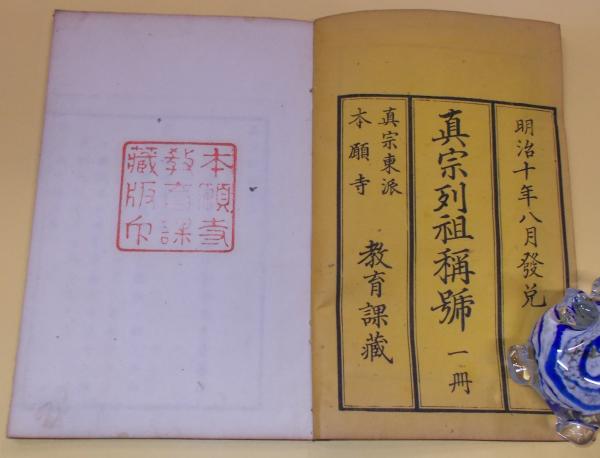 明治十年八月發兌
真宗列祖稱號 一冊
真宗東派
本願寺
教育課藏
本願寺
教育課
藏版印